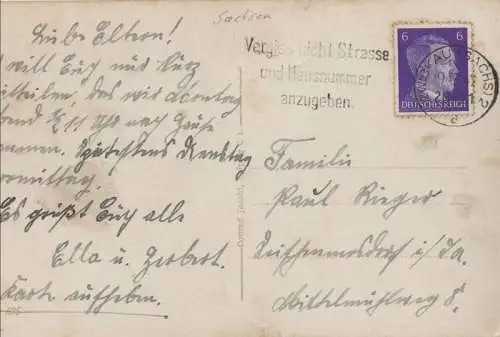 Sachsen
Liebe Eltern!
will Euch nur kurz
mitteilen, das wir Montag
abend ½11 Uhr nach Hause
kommen. Spätestens Dienstag
vormittag.
Es grüßt Euch alle
Ella u. Herbert.
Karte aufheben.
Vergiss nicht Strasse
und Hausnummer
anzugeben.
6 6
DEUTSCHES REICH
(SACHS) 2
Familie
Paul Rieger
i/Sa.
Mittelmühlweg 8.